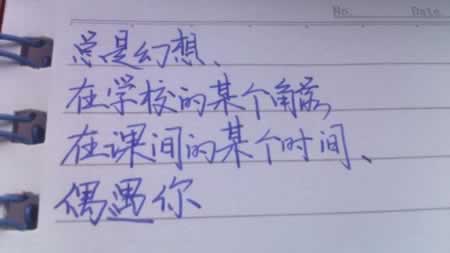 No. Date
总是幻想、
在学校的某个角落,
在课间的某个时间、
偶遇你